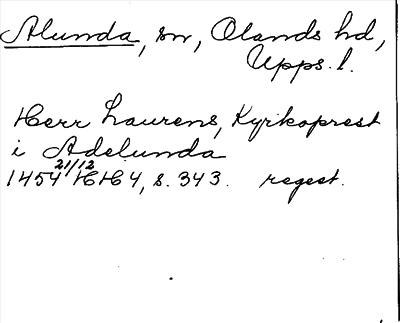 Alunda, sn, Olands hd,
Upps. l.
Herr Laurens, Kyrkoprest
i Adelunda
1454 21/12 HH 4, s. 343. regest.